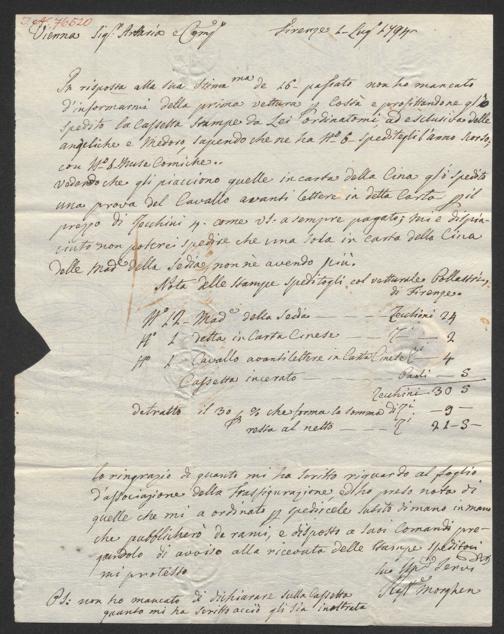 I.N. 76520
Vienna Sig.ri Artaria e Comp.
Firenze 1 Lug.o 1794
In risposta alla sua Stima.ma de 16. passato non ho mancato
d'informarmi della prima vettura p Costà e profittandone gl'ò
spedito la Cassetta Stampe da Lei Ordinatomi, ad esclusiva delle
angeliche e Medoro sapendo che ne ha N.o 6. speditegli l'anno scorso,
con N.o 8. Musa Comiche..
vedendo che gli piacciono quelle in carta della Cina gl'ò spedito
una prova del Cavallo avanti lettere in detta Carta p il
prezzo di Zecchini 4. come V.S. a sempre pagato; mi è dispia-
ciuto non poterci spedire che una sola in carta della Cina
delle Mad.e della Sedia, non nè avendo più.
Nota delle Stampe speditogli col vetturale Pollastri
di Firenze.
N.o 12 - Mad.e della Sedia — Zecchini 24
N.o 1 detta in Carta Cinese — Z.i - 2
N.o 1 - Cavallo avanti lettere in Carta Cinese Z.i - 4
Cassetta incerato — Paoli - 5
Zecchini 30 5
detratto il 30 p % che forma la somma di Z.i - 9 -
resta al netto — Z.i 21 - 5 -
Lo ringrazio di quanto mi ha scritto riguardo al foglio
d'associazione della Trasfigurazione, ed ho preso nota di
quelle che mi a ordinato p spedicele subito di mano in mano
che pubblicherò de rami, e disposto a suoi Comandi pre-
gandolo di avviso alla ricevuta delle Stampe speditoci
mi protesto
Raff.o Morghen
PS: non ho mancato di dichiarare sulla Cassetta
quanto mi ha scritto acciò gli sia inoltrata